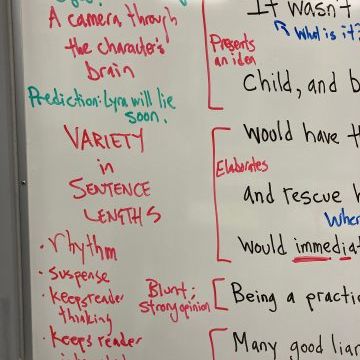 A camera through
the character's
brain
Prediction: Lyra will lie
soon.
VARIETY
in
SENTENCE
LENGTHS
• rhythm
• suspense
• keeps reader
thinking
• keeps reader
It wasn't
What is it?
Presents
an idea
Child, and b
Would have t
Elaborates
and rescue
Wher
Would immediat
Blunt;
strong opinion
Being a practic
Many good liar